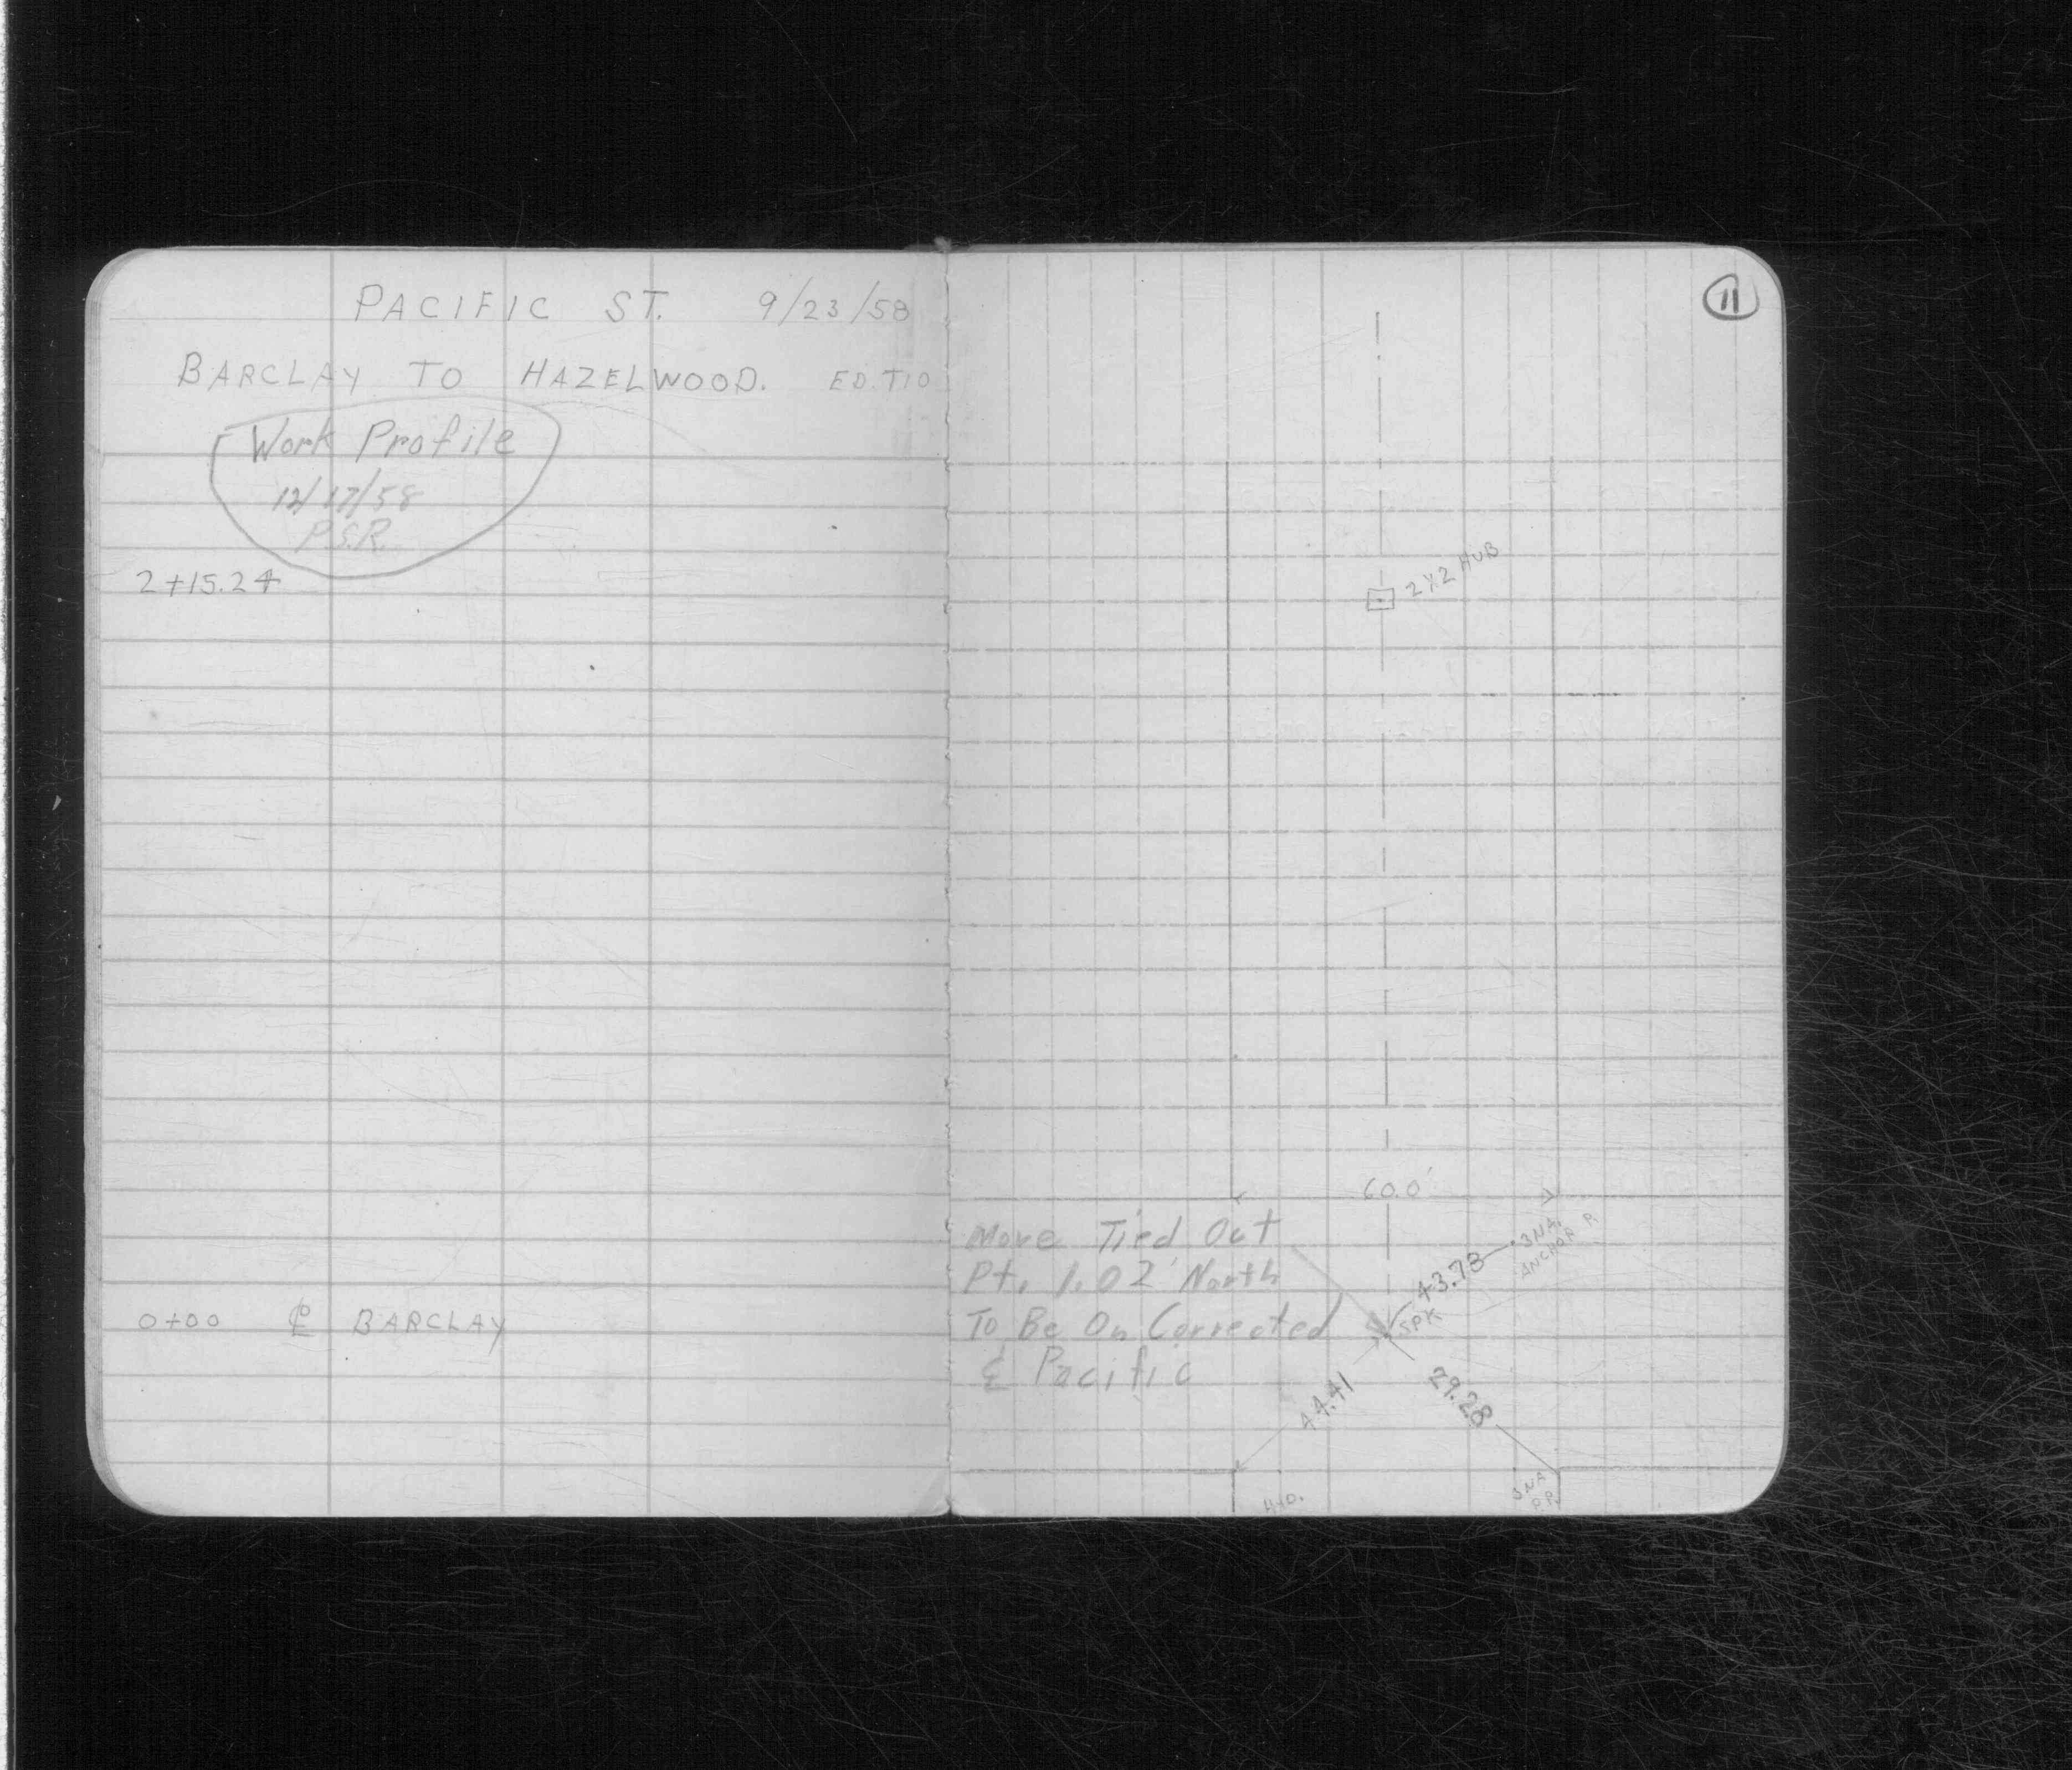 PACIFIC ST. 9/23/58
BARCLAY TO HAZELWOOD. ED.T10
Work Profile
12/17/58
P.S.R.
2+15.24
0+00 ℄ BARCLAY
11
2X2 HUB
60.0'
Move Tied Out
Pt. 1.02' North
To Be On Corrected
℄ Pacific
43.73
3NA.
ANCHOR P.
SPK
44.41
29.28
HYD.
3NA
P.P.